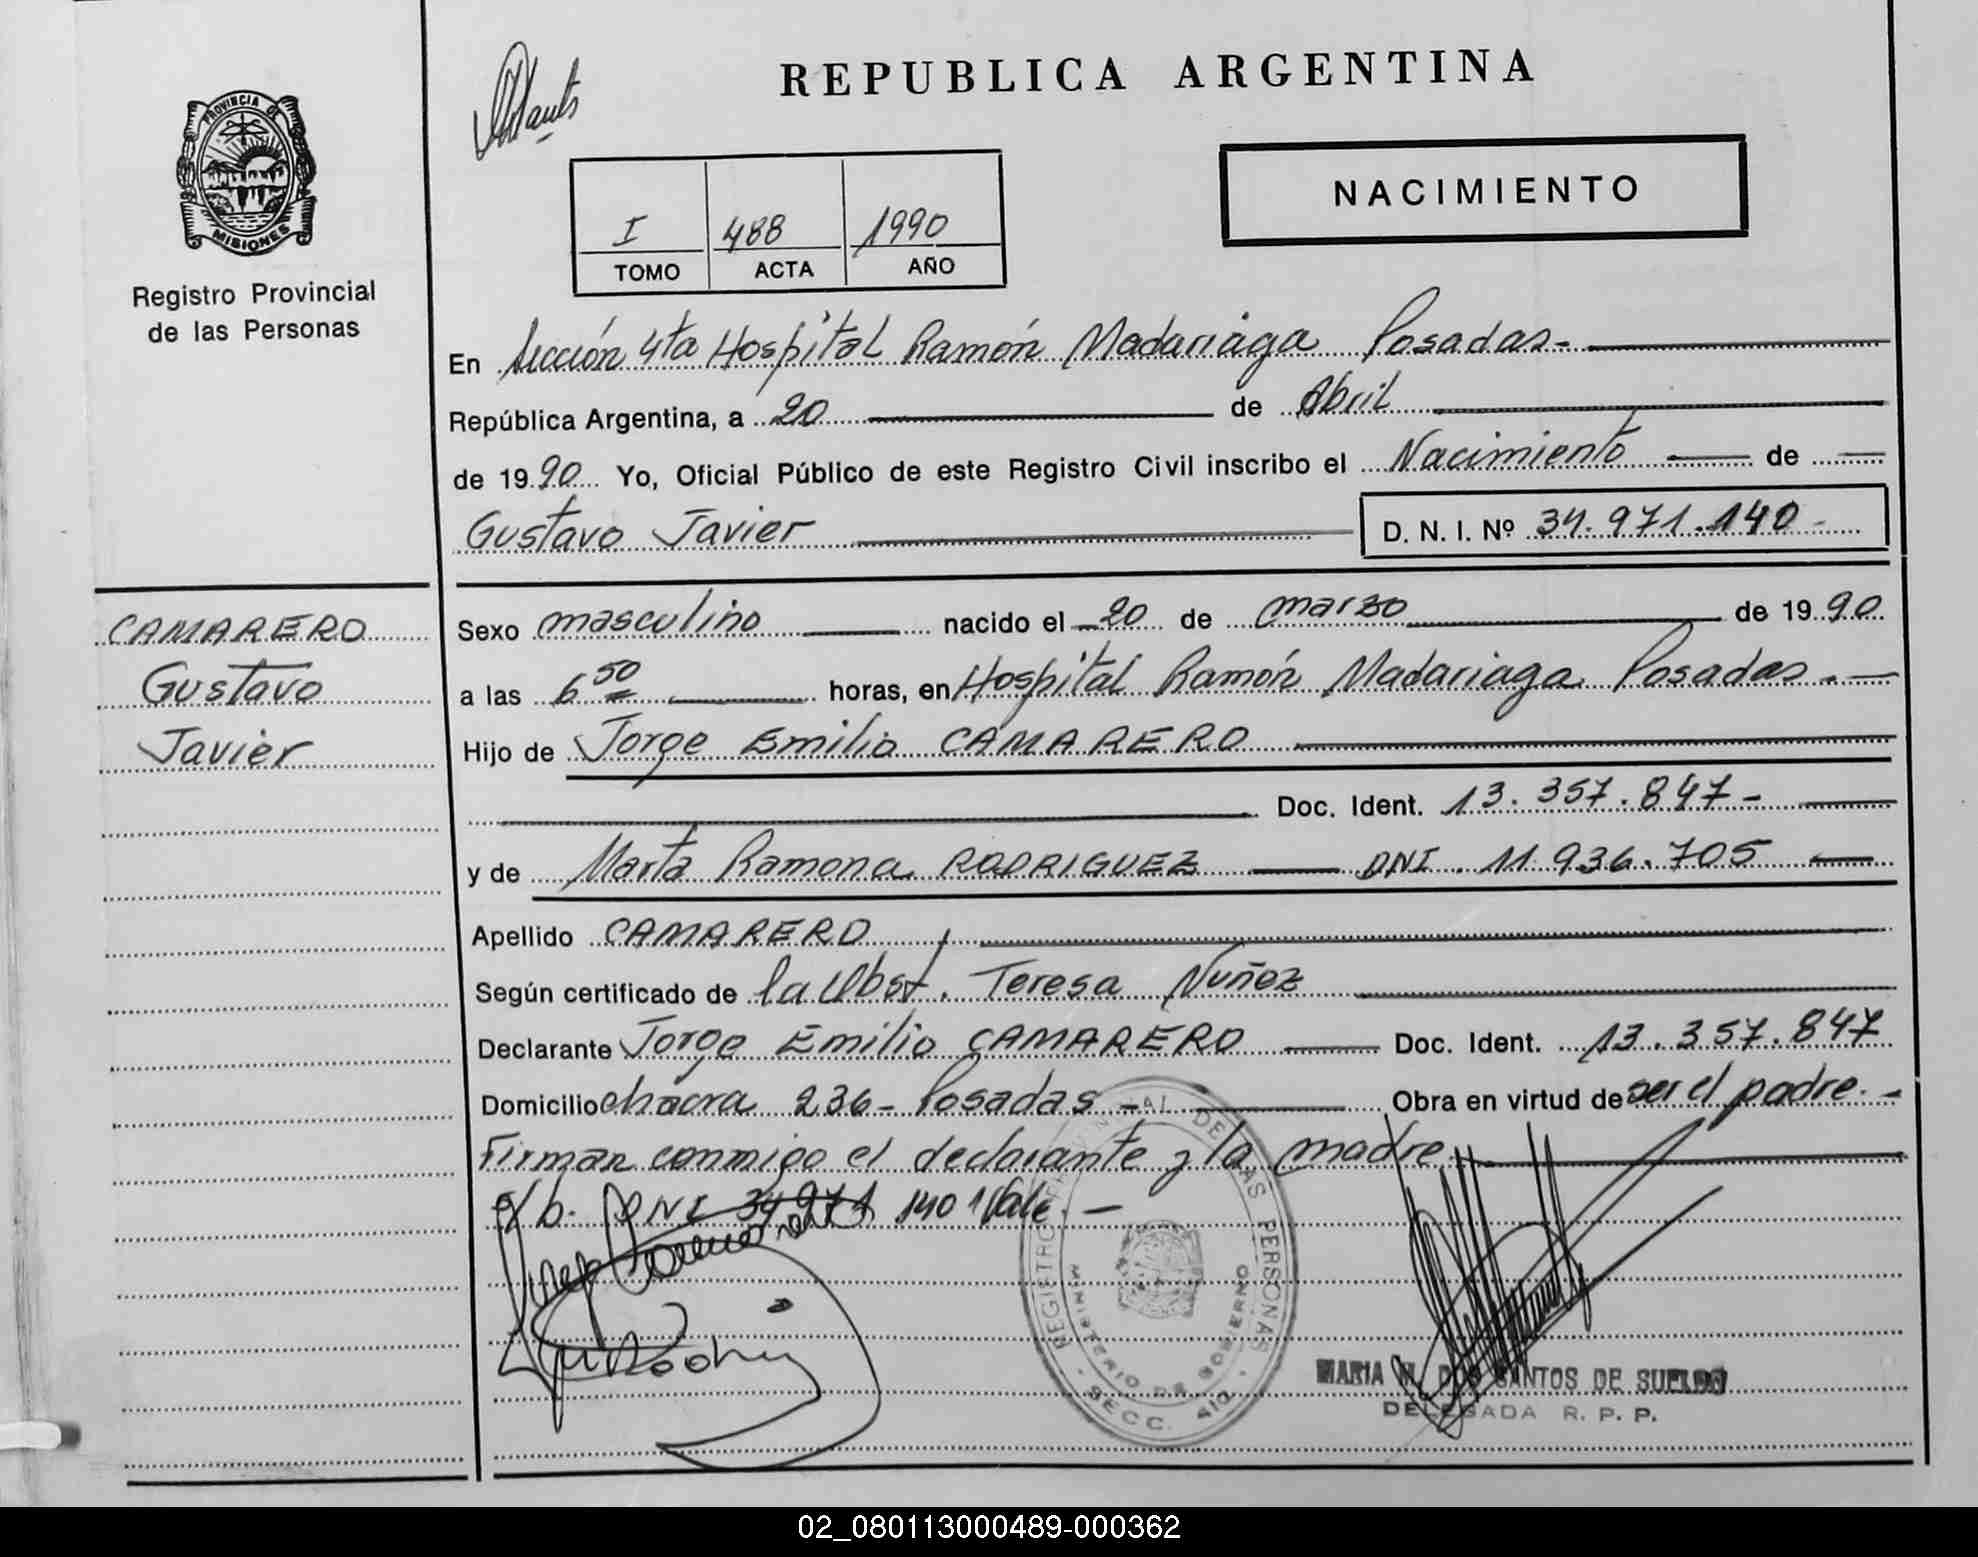 REPUBLICA ARGENTINA
PROVINCIA DE
MISIONES
Registro Provincial
de las Personas
NACIMIENTO
I 488 1990
TOMO ACTA AÑO
En Sección 4ta Hospital Ramón Madariaga Posadas.-
República Argentina, a 20 de Abril
de 1990 Yo, Oficial Público de este Registro Civil inscribo el Nacimiento de
Gustavo Javier D. N. I. Nº 34.971.140-
CAMARERO
Gustavo
Javier
Sexo masculino nacido el 20 de marzo de 1990
a las 6 50 horas, en Hospital Ramón Madariaga Posadas.-
Hijo de Jorge Emilio CAMARERO
Doc. Ident. 13.357.847-
y de Marta Ramona RODRIGUEZ DNI. 11.936.705
Apellido CAMARERO
Según certificado de la Obst. Teresa Nuñez
Declarante Jorge Emilio CAMARERO Doc. Ident. 13.357.847
Domicilio chacra 236- Posadas - Obra en virtud de ser el padre.-
Firman conmigo el declarante y la madre.
s/b. DNI 34 971 140 Vale.-
REGISTRO PROVINCIAL DE LAS PERSONAS
MINISTERIO DE GOBIERNO
SECC. 4ta
MARIA DOS SANTOS DE
DELEGADA R. P. P.
02_080113000489-000362